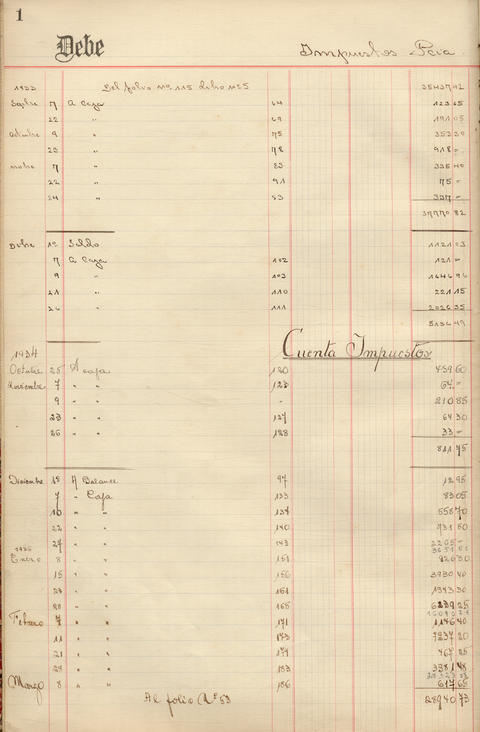 1
Debe Impuestos Pcia.
1933 Del folio Nº 115 Libro Nº 5 35437 42
Sepbre 7 A Caja 64 123 65
22 " 69 191 05
octubre 9 " 75 353 30
23 " 78 918 -
nvbre 7 " 83 335 40
22 " 91 75 -
24 " 93 337 -
37770 82
Dcbre 1º Saldo 1121 03
7 A Caja 102 121 -
9 " 103 1646 96
21 " 110 221 15
26 " 111 2026 35
5136 49
Cuenta Impuestos
1934
Octubre 25 A caja 120 439 60
Noviembre 7 " " 123 67 -
9 " " " 210 85
23 " " 127 64 30
26 " " 128 33 -
811 75
Diciembre 1º A Balance 97 12 95
7 " Caja 133 83 05
10 " " 134 558 70
22 " " 140 731 80
27 " " 143 2205 -
1935
Enero 8 " " 151 926 30
15 " " 156 3930 40
23 " " 161 1343 30
28 " " 165 6239 25
Febrero 7 " " 171 1146 40
11 " " 173 7237 20
21 " " 177 467 25
28 " " 183 3381 48
Marzo 8 " " 186 617 65
Al folio Nº 53 28940 73